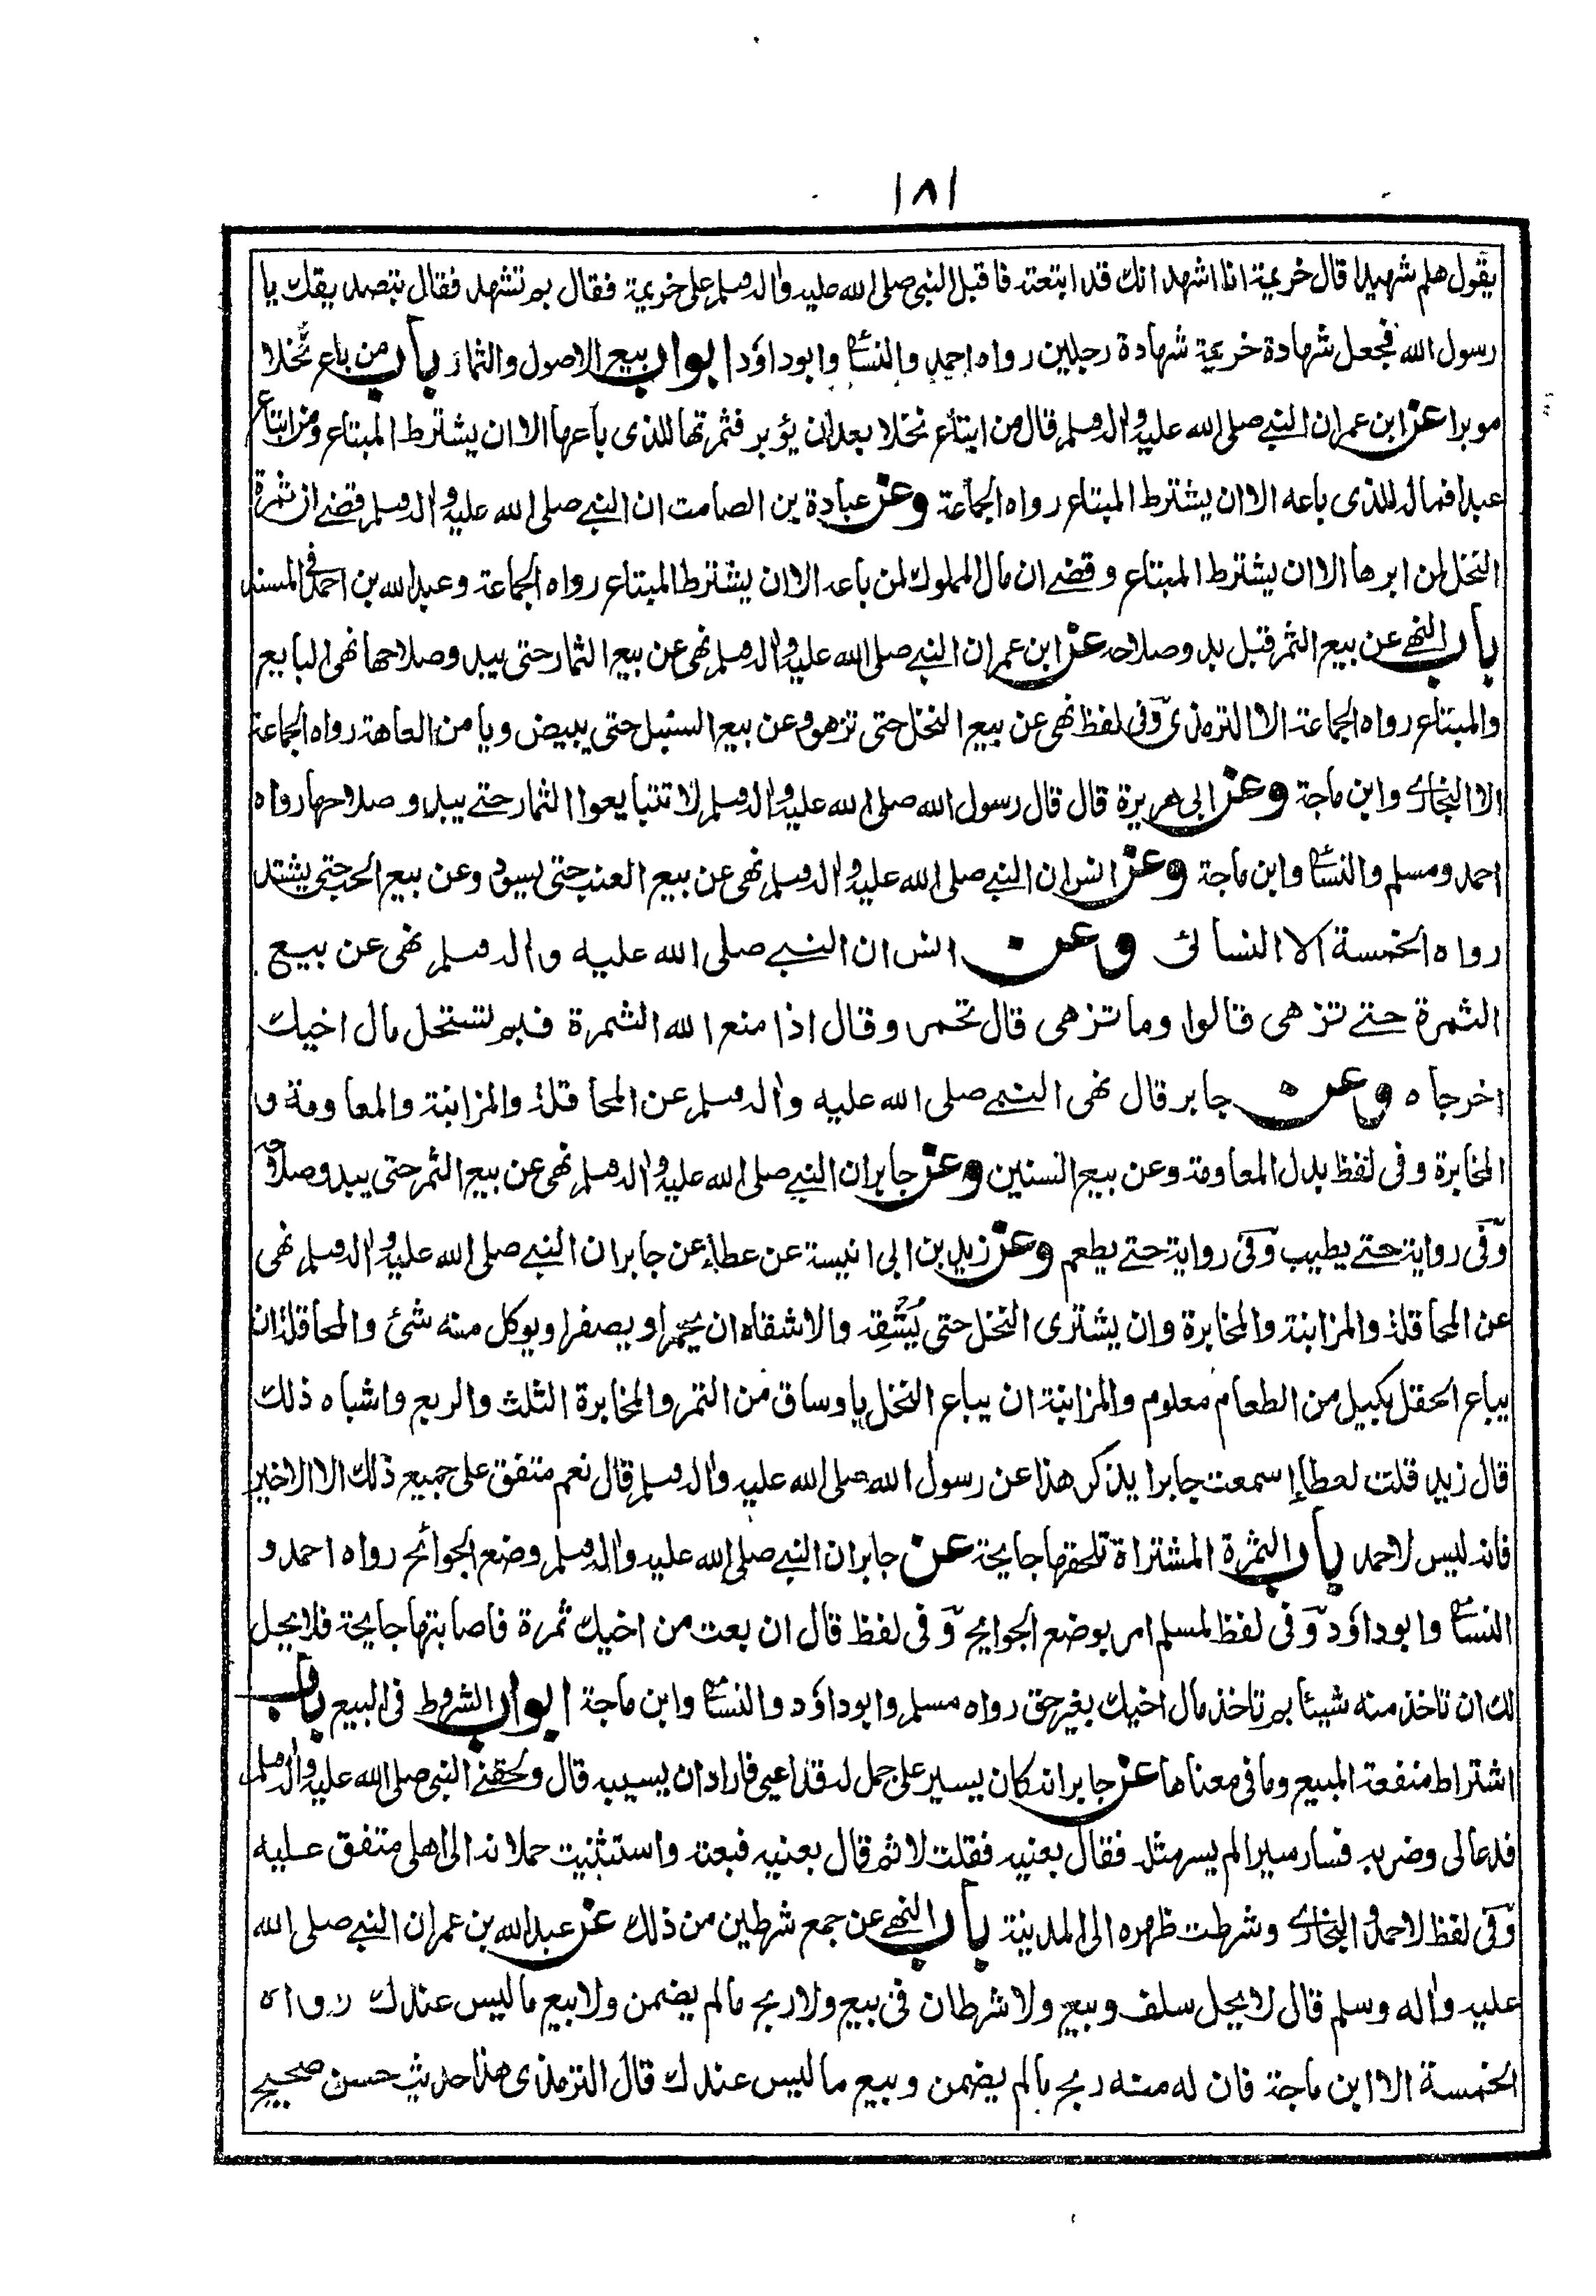 ١٨١
يقول هلم شهيدا قال خزيمة انا اشهد انك قد ابتعته فاقبل النبي صلى الله عليه واله وسلم على خزيمة فقال بم تشهد فقال بتصديقك يا
رسول الله فجعل شهادة خزيمة شهادة رجلين رواه احمد والنسائى وابوداود ابواب بيع الاصول والثمار باب من باع نخلا
موبرا عن ابن عمر ان النبي صلى الله عليه واله وسلم قال من ابتاع نخلا بعد ان يؤبر فثمرتها للذى باعها الا ان يشترط المبتاع ومن ابتاع
عبدا فماله للذى باعه الا ان يشترط المبتاع رواه الجماعة وعن عبادة بن الصامت ان النبي صلى الله عليه واله وسلم قضى ان ثمرة
النخل لمن ابرها الا ان يشترط المبتاع وقضى ان مال المملوك لمن باعه الا ان يشترط المبتاع رواه الجماعة وعبد الله بن احمد فى المسند
باب النهى عن بيع الثمر قبل بدو صلاحه عن ابن عمر ان النبي صلى الله عليه واله وسلم نهى عن بيع الثمار حتى يبدو صلاحها نهى البايع
والمبتاع رواه الجماعة الا الترمذى وفى لفظ نهى عن بيع النخل حتى تزهو وعن بيع السنبل حتى يبيض ويامن العاهة رواه الجماعة
الا البخارى وابن ماجة وعن ابى هريرة قال قال رسول الله صلى الله عليه واله وسلم لا تتبايعوا الثمار حتى يبدو صلاحها رواه
احمد ومسلم والنسائى وابن ماجة وعن انس ان النبي صلى الله عليه واله وسلم نهى عن بيع العنب حتى يسود وعن بيع الحب حتى يشتد
رواه الخمسة الا النسائى وعن انس ان النبي صلى الله عليه واله وسلم نهى عن بيع
الثمرة حتى تزهى قالوا وما تزهى قال تحمر وقال اذا منع الله الثمرة فبم تستحل مال اخيك
اخرجاه وعن جابر قال نهى النبي صلى الله عليه واله وسلم عن المحاقلة والمزابنة والمعاومة و
المخابرة وفى لفظ بدل المعاومة وعن بيع السنين وعن جابر ان النبي صلى الله عليه واله وسلم نهى عن بيع الثمر حتى يبدو صلاحه
وفى رواية حتى يطيب وفى رواية حتى يطعم وعن زيد بن ابى انيسة عن عطاء عن جابر ان النبي صلى الله عليه واله وسلم نهى
عن المحاقلة والمزابنة والمخابرة وان يشترى النخل حتى يشقه والاشقاه ان يحمر او يصفر او يوكل منه شئ والمحاقلة ان
يباع الحقل بكيل من الطعام معلوم والمزابنة ان يباع النخل باوساق من التمر والمخابرة الثلث والربع واشباه ذلك
قال زيد قلت لعطاء اسمعت جابرا يذكر هذا عن رسول الله صلى الله عليه واله وسلم قال نعم متفق على جميع ذلك الا الاخير
فانه ليس لاحمد باب الثمرة المشتراة تلحقها جايحة عن جابر ان النبي صلى الله عليه واله وسلم وضع الجوائح رواه احمد و
النسائى وابوداود وفى لفظ لمسلم امر بوضع الجوايح وفى لفظ قال ان بعت من اخيك ثمرة فاصابتها جايحة فلا يحل
لك ان تاخذ منه شيئا بم تاخذ مال اخيك بغير حق رواه مسلم وابوداود والنسائى وابن ماجة ابواب الشروط فى البيع باب
اشتراط منفعة المبيع وما فى معناها عن جابر انه كان يسير على جمل له قد اعيى فاراد ان يسيبه قال ولحقنى النبي صلى الله عليه واله وسلم
فدعا لى وضربه فسار سيرا لم يسر مثله فقال بعنيه فقلت لا ثم قال بعنيه فبعته واستثنيت حملانه الى اهلى متفق عليه
وفى لفظ لاحمد والبخارى وشرطت ظهره الى المدينة باب النهى عن جمع شرطين من ذلك عن عبد الله بن عمر ان النبي صلى الله
عليه واله وسلم قال لا يحل سلف وبيع ولا شرطان فى بيع ولا ربح مالم يضمن ولا بيع ما ليس عندك رواه
الخمسة الا ابن ماجة فان له منه ربح مالم يضمن وبيع ما ليس عندك قال الترمذى هذا حديث حسن صحيح